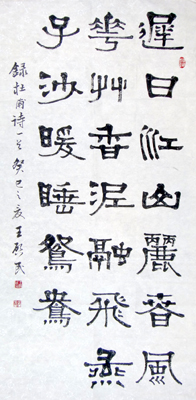 遲日江山麗春風
華艸香泥融飛燕
子沙暖睡鴛鴦
錄杜甫詩一首 癸巳之夏 王民